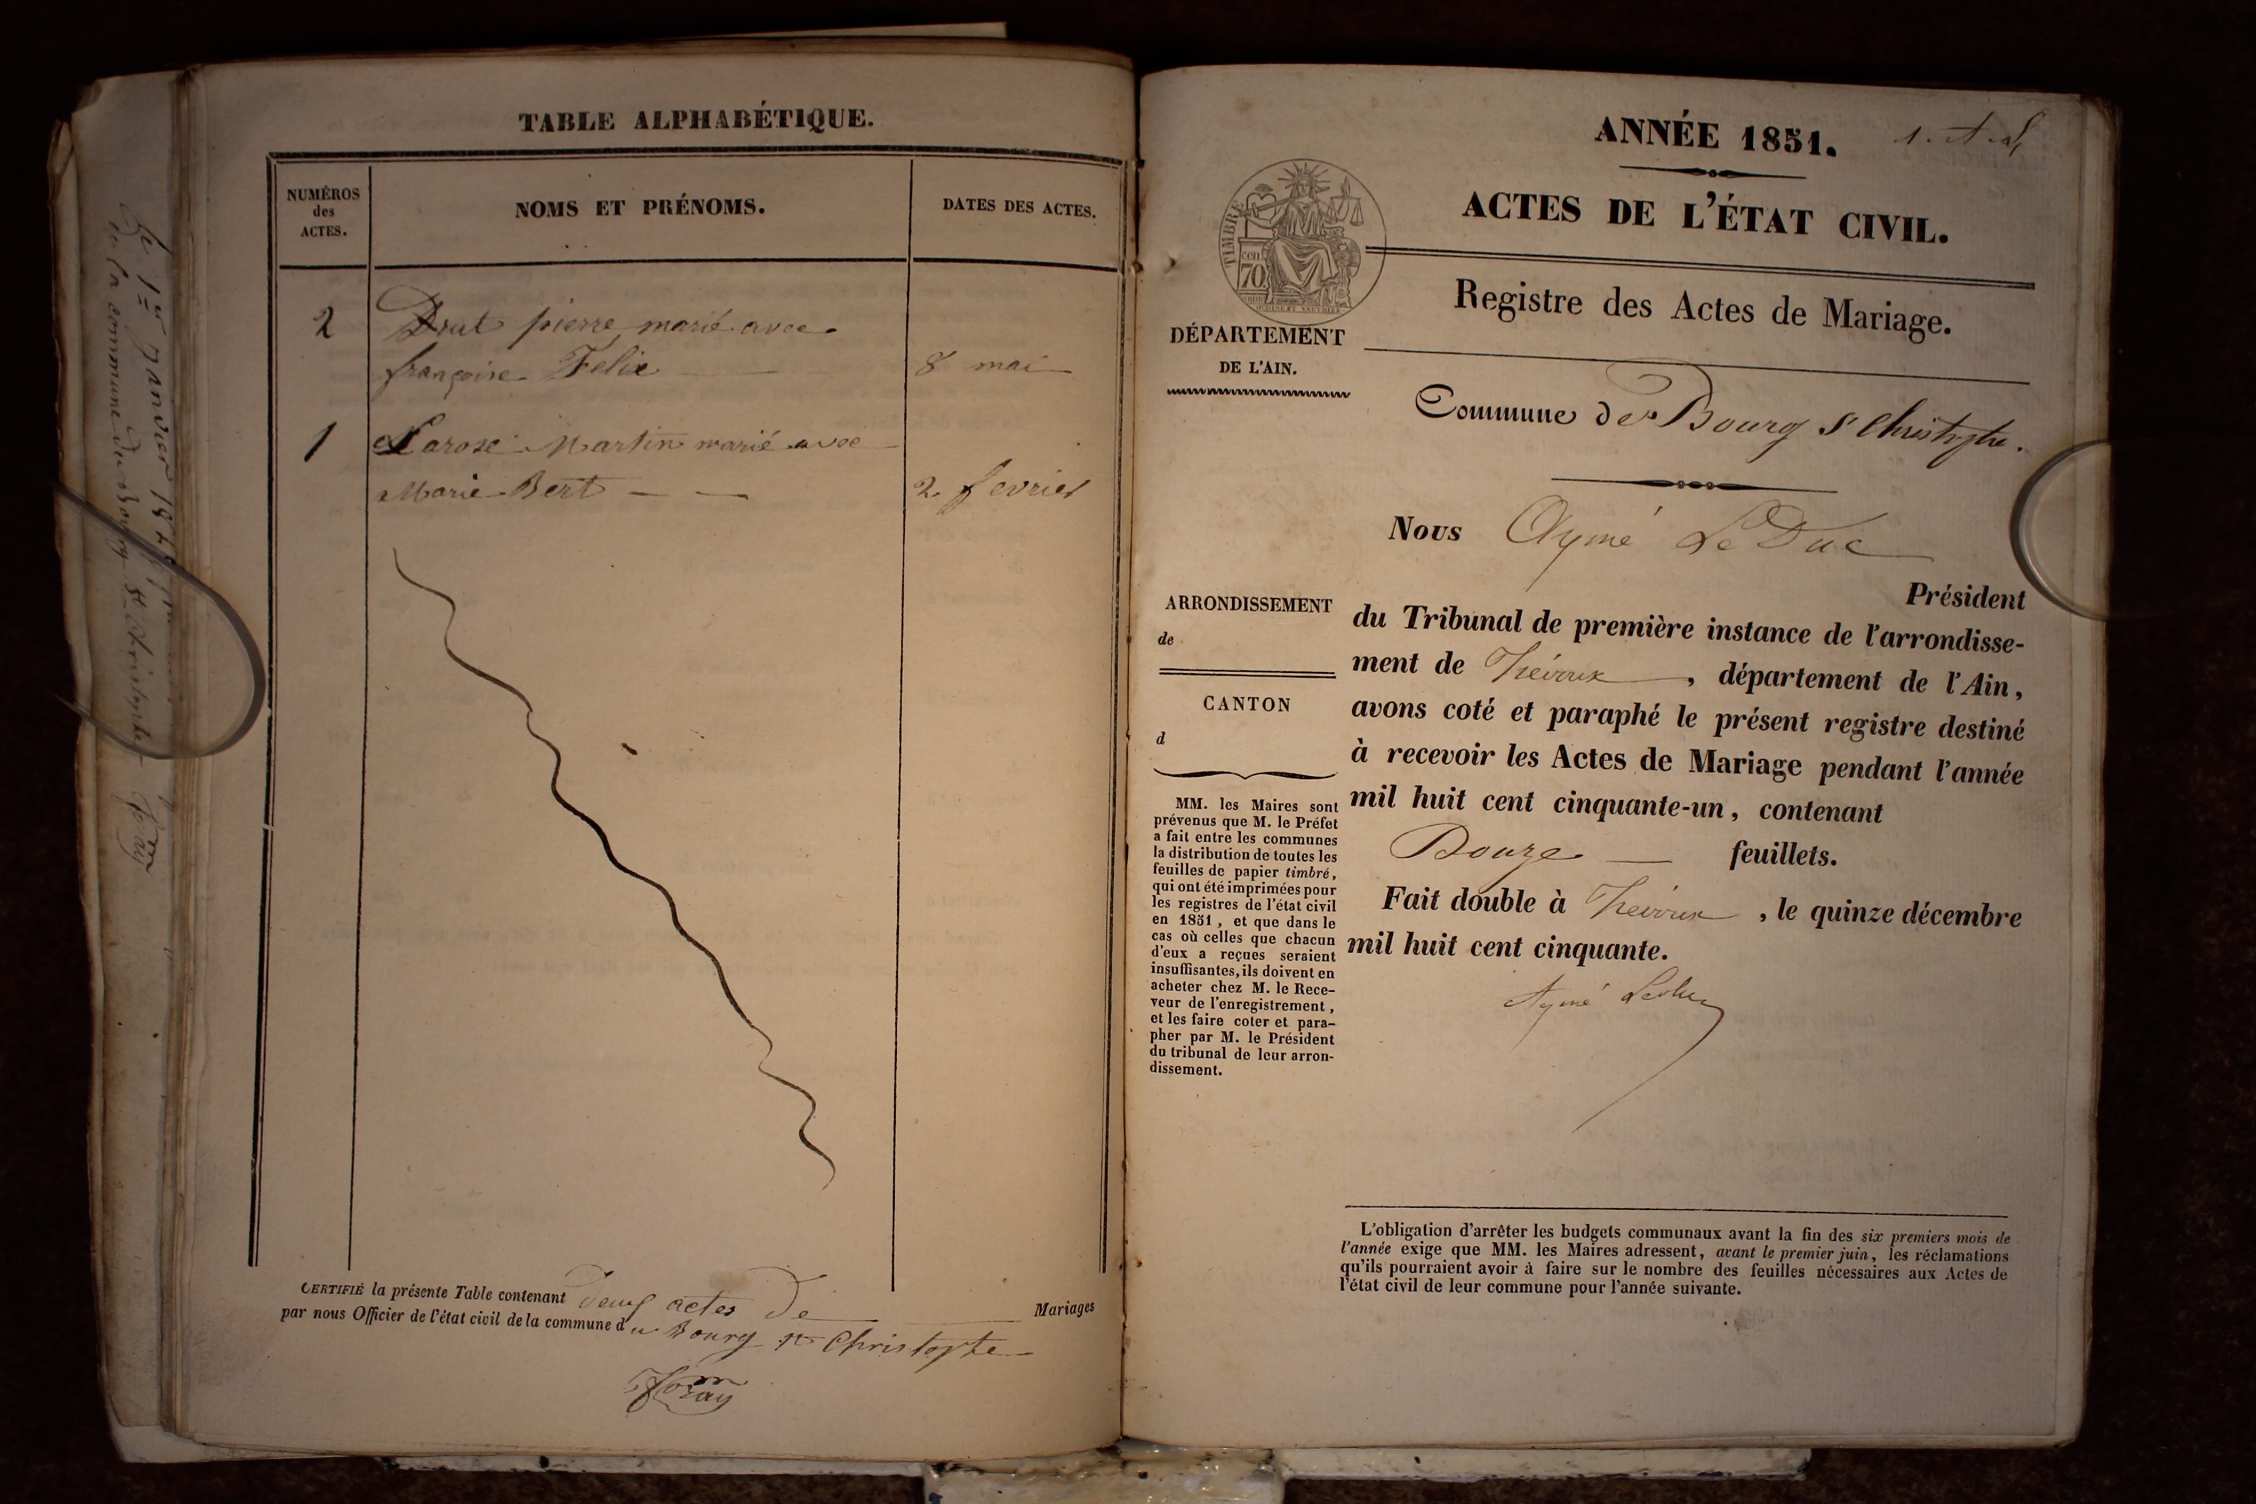 TABLE ALPHABÉTIQUE.
NUMÉROS
des
ACTES.
NOMS ET PRÉNOMS.
DATES DES ACTES.
2
Drut pierre marié avec
françoise Felix
8 mai
1
Larose Martin marié avec
Marie Bert
2 fevrier
CERTIFIÉ la présente Table contenant deux actes de Mariages
par nous Officier de l'état civil de la commune du Bourg St Christophe
Le 1er janvier
de la commune du Bourg St Christophe
ANNÉE 1851.
ACTES DE L'ÉTAT CIVIL.
TIMBRE
70
Registre des Actes de Mariage.
DÉPARTEMENT
DE L'AIN.
Commune de Bourg St Christophe.
Nous Aymé Le Duc
Président
ARRONDISSEMENT
de
CANTON
d
du Tribunal de première instance de l'arrondisse-
ment de Trévoux, département de l'Ain,
avons coté et paraphé le présent registre destiné
à recevoir les Actes de Mariage pendant l'année
mil huit cent cinquante-un, contenant
Douze feuillets.
Fait double à Trévoux, le quinze décembre
mil huit cent cinquante.
Aymé Leduc
MM. les Maires sont
prévenus que M. le Préfet
a fait entre les communes
la distribution de toutes les
feuilles de papier timbré,
qui ont été imprimées pour
les registres de l'état civil
en 1851, et que dans le
cas où celles que chacun
d'eux a reçues seraient
insuffisantes, ils doivent en
acheter chez M. le Rece-
veur de l'enregistrement,
et les faire coter et para-
pher par M. le Président
du tribunal de leur arron-
dissement.
L'obligation d'arrêter les budgets communaux avant la fin des six premiers mois de
l'année exige que MM. les Maires adressent, avant le premier juin, les réclamations
qu'ils pourraient avoir à faire sur le nombre des feuilles nécessaires aux Actes de
l'état civil de leur commune pour l'année suivante.